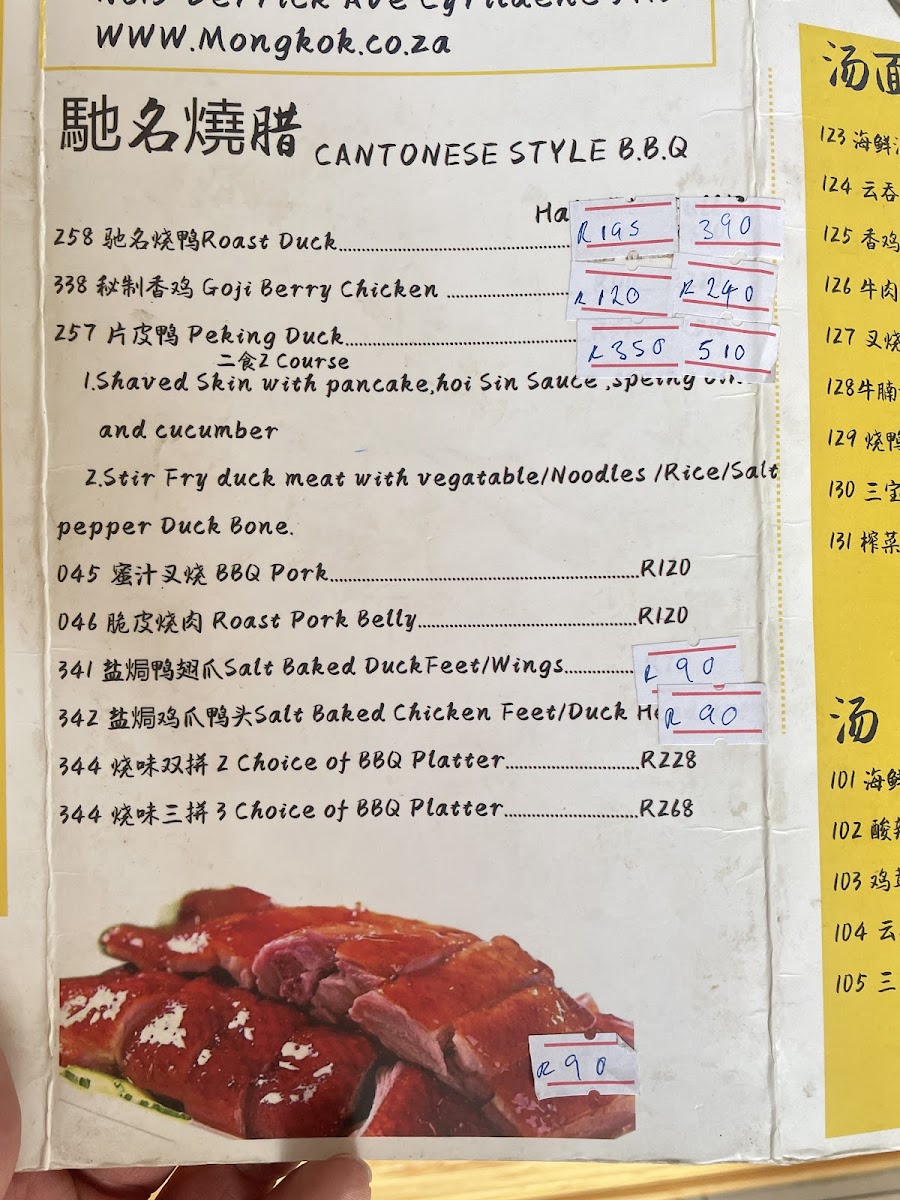 WWW.Mongkok.co.za
馳名燒腊 CANTONESE STYLE B.B.Q
258 驰名烧鸭Roast Duck R195 390
338 秘制香鸡 Goji Berry Chicken R120 R240
257 片皮鸭 Peking Duck R350 510
二食2 Course
1.Shaved Skin with pancake,hoi Sin Sauce
and cucumber
2.Stir Fry duck meat with vegatable/Noodles /Rice/Salt
pepper Duck Bone.
045 蜜汁叉烧 BBQ Pork R120
046 脆皮烧肉 Roast Pork Belly R120
341 盐焗鸭翅爪Salt Baked DuckFeet/Wings R90
342 盐焗鸡爪鸭头Salt Baked Chicken Feet/Duck R90
344 烧味双拼 2 Choice of BBQ Platter R228
344 烧味三拼 3 Choice of BBQ Platter R268
R90
汤面
123 海鲜
124 云吞
125 香鸡
126 牛肉
127 叉烧
128牛腩
129 烧鸭
130 三宝
131 榨菜
汤
101 海鲜
102 酸辣
103 鸡
104 云
105 三